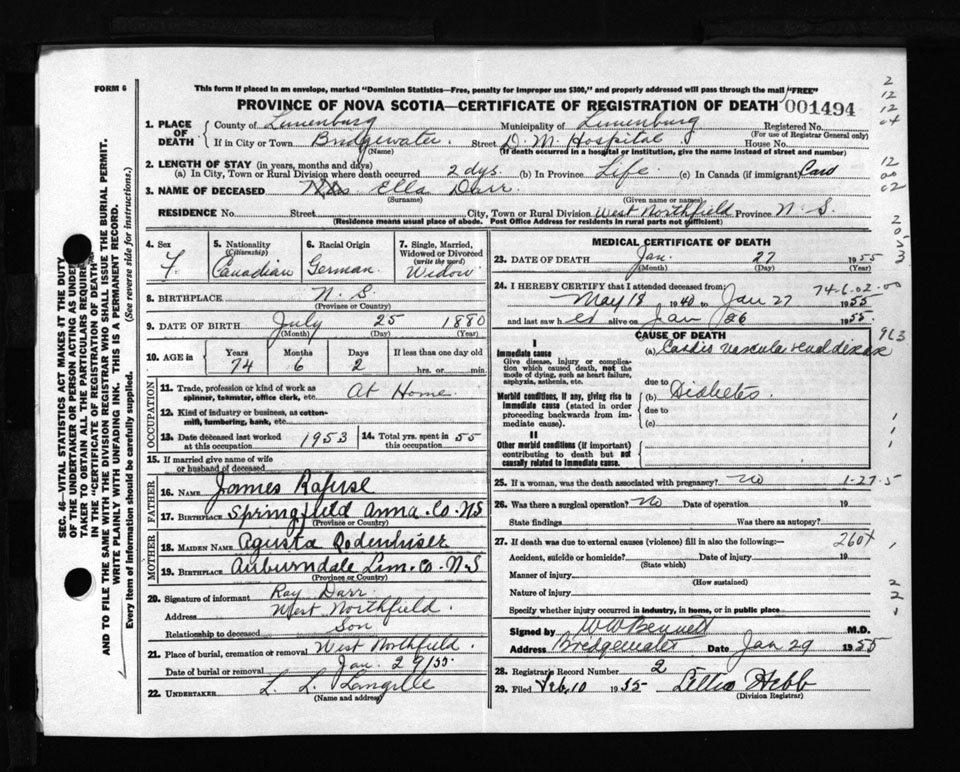 FORM 6
This form if placed in an envelope, marked "Dominion Statistics—Free, penalty for improper use $300," and properly addressed will pass through the mail "FREE"
PROVINCE OF NOVA SCOTIA—CERTIFICATE OF REGISTRATION OF DEATH 001494
SEC. 46—VITAL STATISTICS ACT MAKES IT THE DUTY
OF THE UNDERTAKER OR PERSON ACTING AS UNDER
TAKER TO OBTAIN ALL THE PARTICULARS REQUIRE
IN THE "CERTIFICATE OF REGISTRATION OF DEATH"
AND TO FILE THE SAME WITH THE DIVISION REGISTRAR WHO SHALL ISSUE THE BURIAL PERMIT.
WRITE PLAINLY WITH UNFADING INK. THIS IS A PERMANENT RECORD.
Every item of information should be carefully supplied. (See reverse side for instructions.)
1. PLACE OF DEATH County of Lunenburg Municipality of Lunenburg Registered No.
(For use of Registrar General only)
If in City or Town Bridgewater Street D. M. Hospital House No.
(Name) (If death occurred in a hospital or institution, give the name instead of street and number)
2. LENGTH OF STAY (in years, months and days)
(a) In City, Town or Rural Division where death occurred 2 dys. (b) In Province Life. (c) In Canada (if immigrant)
3. NAME OF DECEASED Mrs Ella Darr
(Surname) (Given name or names)
RESIDENCE No. Street City, Town or Rural Division West Northfield Province N. S.
(Residence means usual place of abode. Post Office Address for residents in rural parts not sufficient)
4. Sex F.
5. Nationality (Citizenship) Canadian
6. Racial Origin German.
7. Single, Married, Widowed or Divorced (write the word) Widow
8. BIRTHPLACE N. S.
(Province or Country)
9. DATE OF BIRTH July 25 1880
(Month) (Day) (Year)
10. AGE in Years 74 Months 6 Days 2 If less than one day old hrs. or min.
OCCUPATION
11. Trade, profession or kind of work as spinner, teamster, office clerk, etc. At Home.
12. Kind of industry or business, as cotton-mill, lumbering, bank, etc.
13. Date deceased last worked at this occupation 1953 14. Total yrs. spent in this occupation 55
15. If married give name of wife or husband of deceased
FATHER
16. NAME James Rafuse
17. BIRTHPLACE Springfield Anna. Co. N.S
(Province or Country)
MOTHER
18. MAIDEN NAME Agusta Rodenhiser
19. BIRTHPLACE Auburndale Lun. Co. N. S
(Province or Country)
20. Signature of informant Ray Darr
Address West Northfield.
Relationship to deceased Son
21. Place of burial, cremation or removal West Northfield.
Date of burial or removal Jan. 29/55.
22. UNDERTAKER L. L. Langille
(Name and address)
MEDICAL CERTIFICATE OF DEATH
23. DATE OF DEATH Jan. 27 1955
(Month) (Day) (Year)
24. I HEREBY CERTIFY that I attended deceased from: 74-6.02.00
May 18 1940 to Jan 27 1955
and last saw her alive on Jan 26 1955.
CAUSE OF DEATH 963
I
Immediate cause (a) Cardio vascular renal disease
Give disease, injury or complication which caused death, not the mode of dying, such as heart failure, asphyxia, asthenia, etc.
due to
Morbid conditions, if any, giving rise to immediate cause (stated in order proceeding backwards from immediate cause). (b) Diabetes.
due to
(c)
II
Other morbid conditions (if important) contributing to death but not causally related to immediate cause.
25. If a woman, was the death associated with pregnancy? no 1-27-5
26. Was there a surgical operation? No Date of operation 19
State findings Was there an autopsy?
27. If death was due to external causes (violence) fill in also the following:— 260X
Accident, suicide or homicide? Date of injury 19
(State which)
Manner of injury
(How sustained)
Nature of injury
Specify whether injury occurred in industry, in home, or in public place
Signed by W W Bennett M.D.
Address Bridgewater Date Jan 29 1955
28. Registrar's Record Number 2
29. Filed Feb. 10 1955 Lettie Hebb
(Division Registrar)